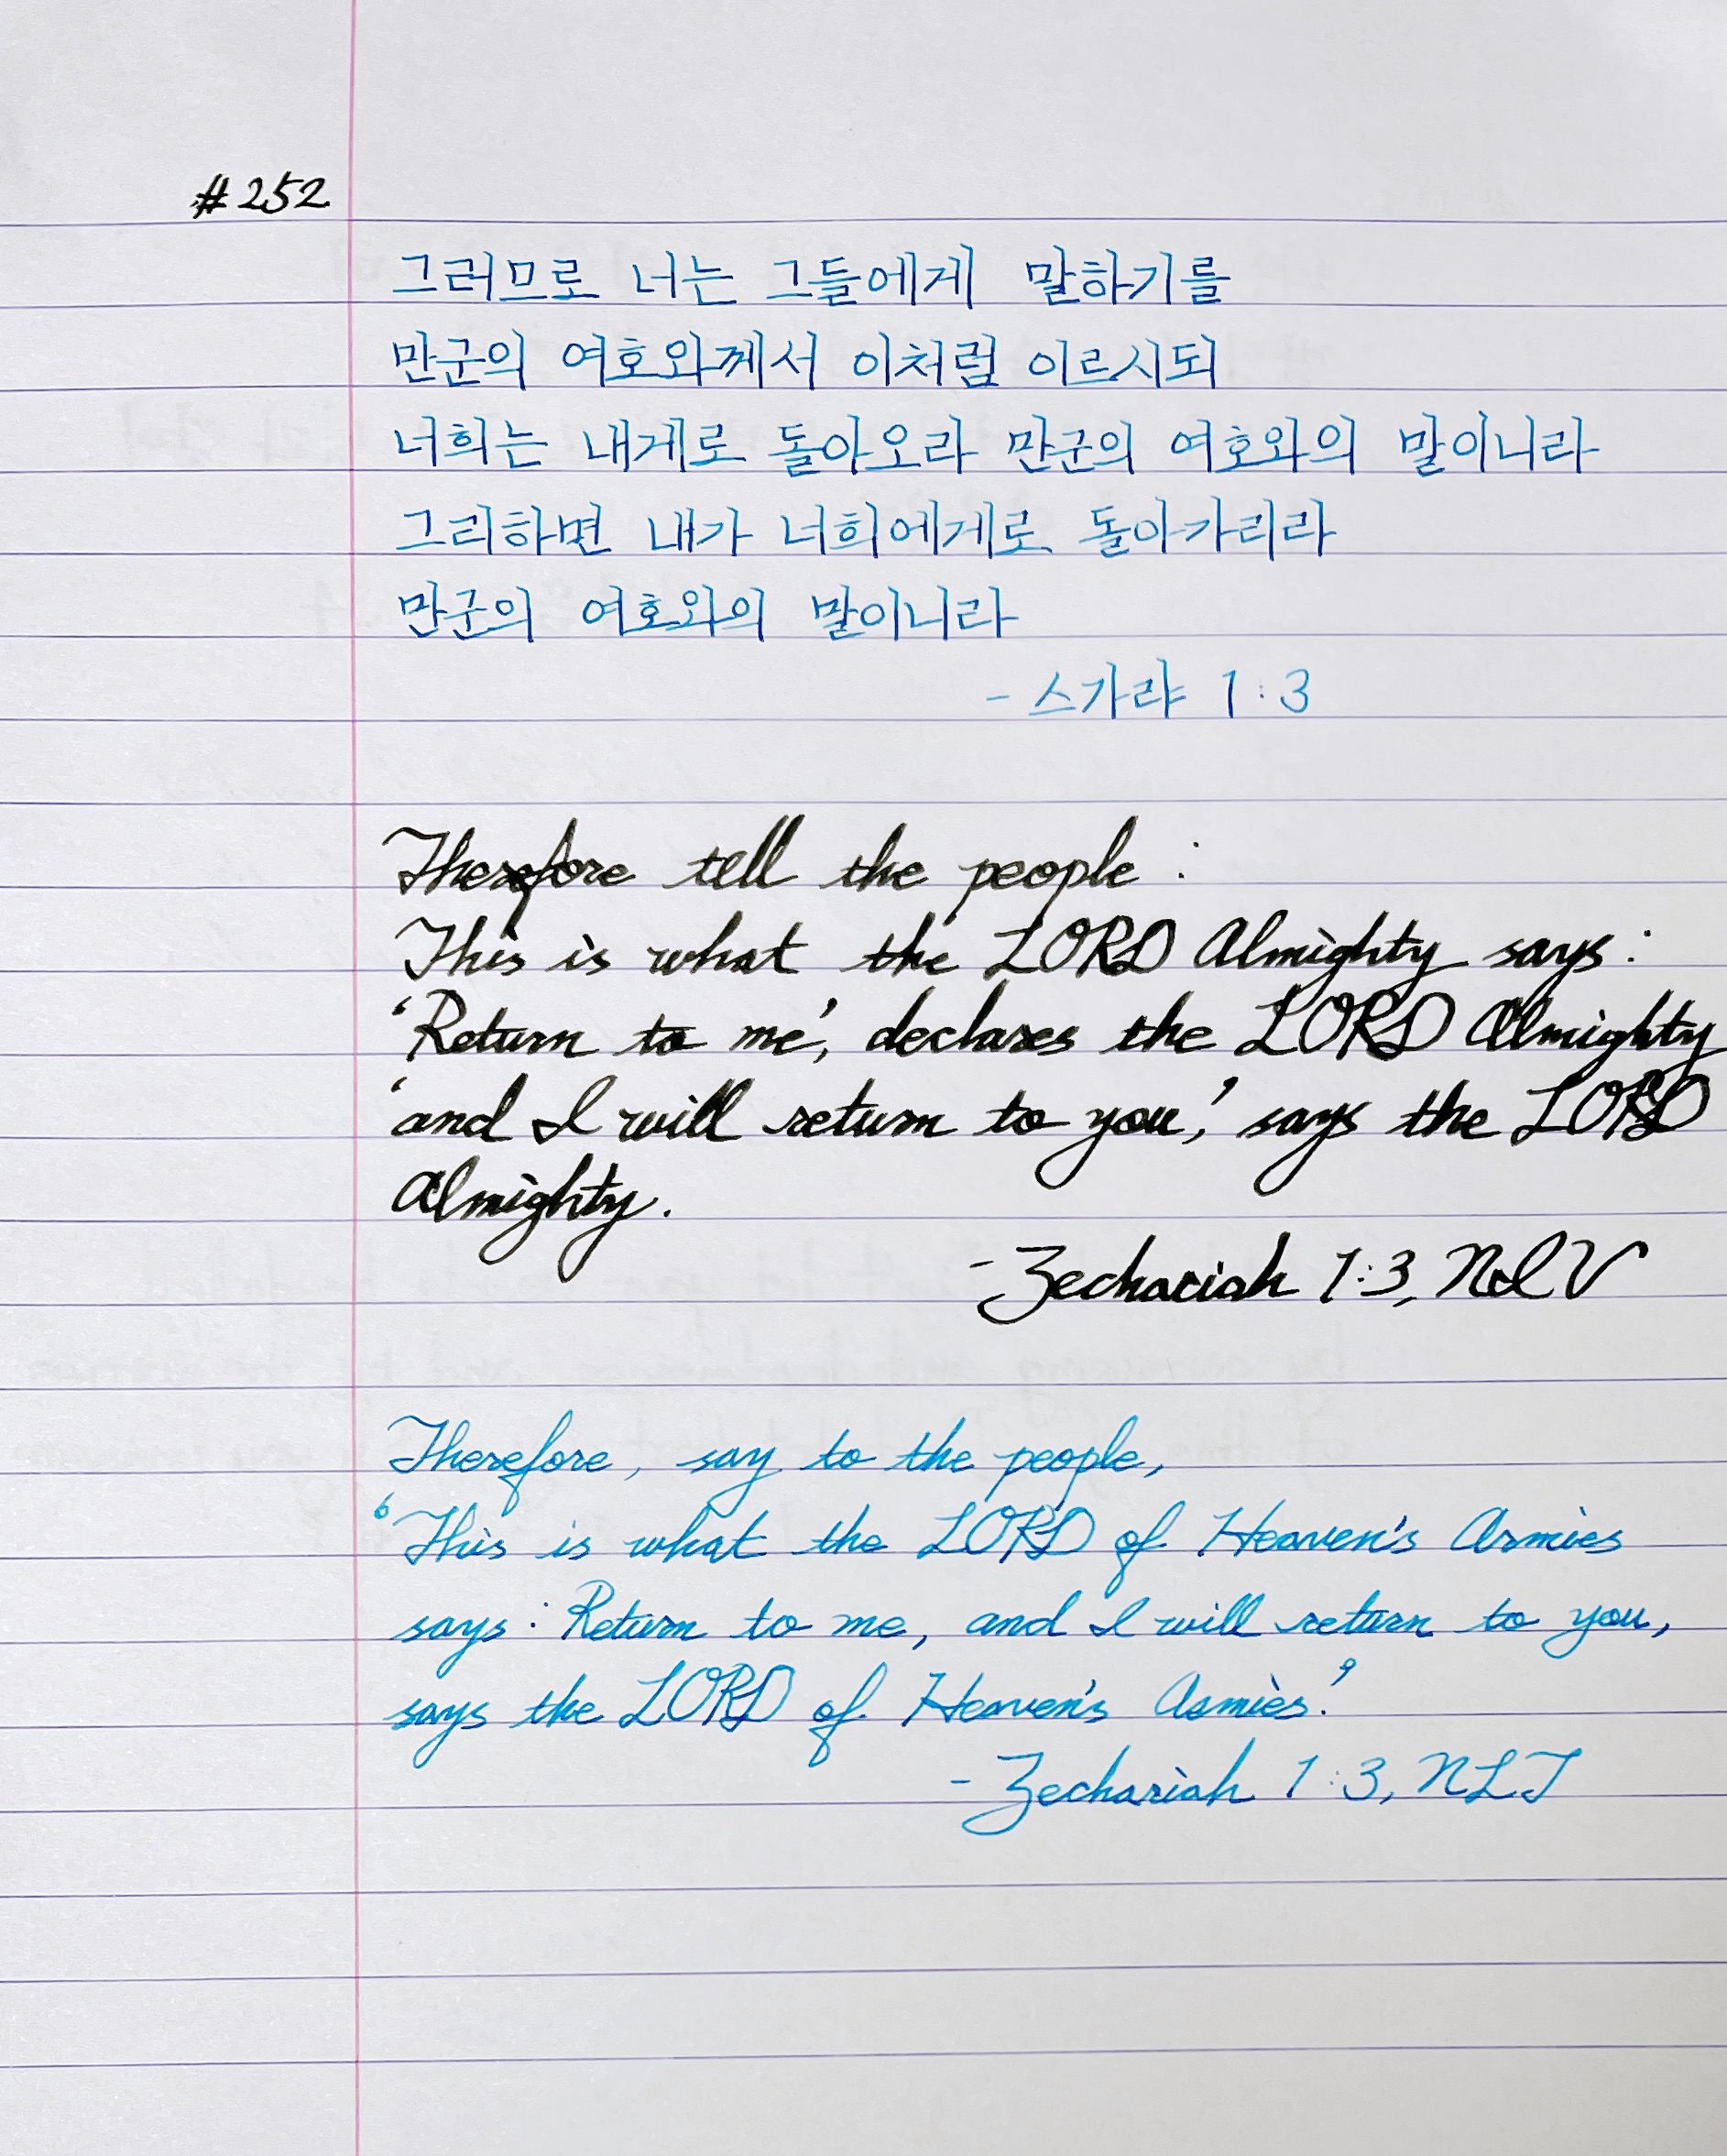 #252
그러므로 너는 그들에게 말하기를
만군의 여호와께서 이처럼 이르시되
너희는 내게로 돌아오라 만군의 여호와의 말이니라
그리하면 내가 너희에게로 돌아가리라
만군의 여호와의 말이니라
- 스가랴 1:3
Therefore tell the people :
This is what the LORD Almighty says :
'Return to me', declares the LORD Almighty
'and I will return to you,' says the LORD
Almighty.
- Zechariah 1:3, NIV
Therefore, say to the people,
'This is what the LORD of Heaven's Armies
says : Return to me, and I will return to you,
says the LORD of Heaven's Armies.'
- Zechariah 1:3, NLT